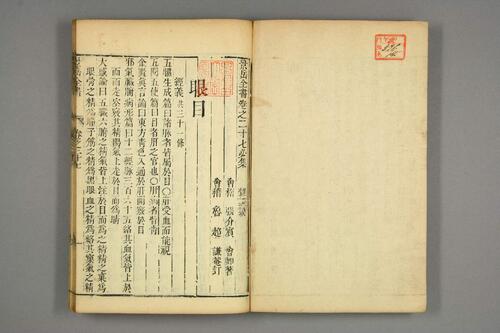 景岳全書卷之二十七必集
會稽 張介賓 會卿著
會稽 魯超 謙菴訂
眼目
經義 共三十一條
五臟生成篇曰諸脉者皆屬於目○肝受血而能視
五閱五使篇曰目者肝之官也○肝病者眥青
金匱真言論曰東方青色入通於肝開竅於目
邪氣臟腑病形篇曰十二經脉三百六十五絡其血氣皆上於
面而走空竅其精陽氣上走於目而為睛
大惑論曰五臟六腑之精氣皆上注於目而為之精精之窠為
眼骨之精為瞳子筋之精為黑眼血之精為絡其窠氣之精
景岳全書